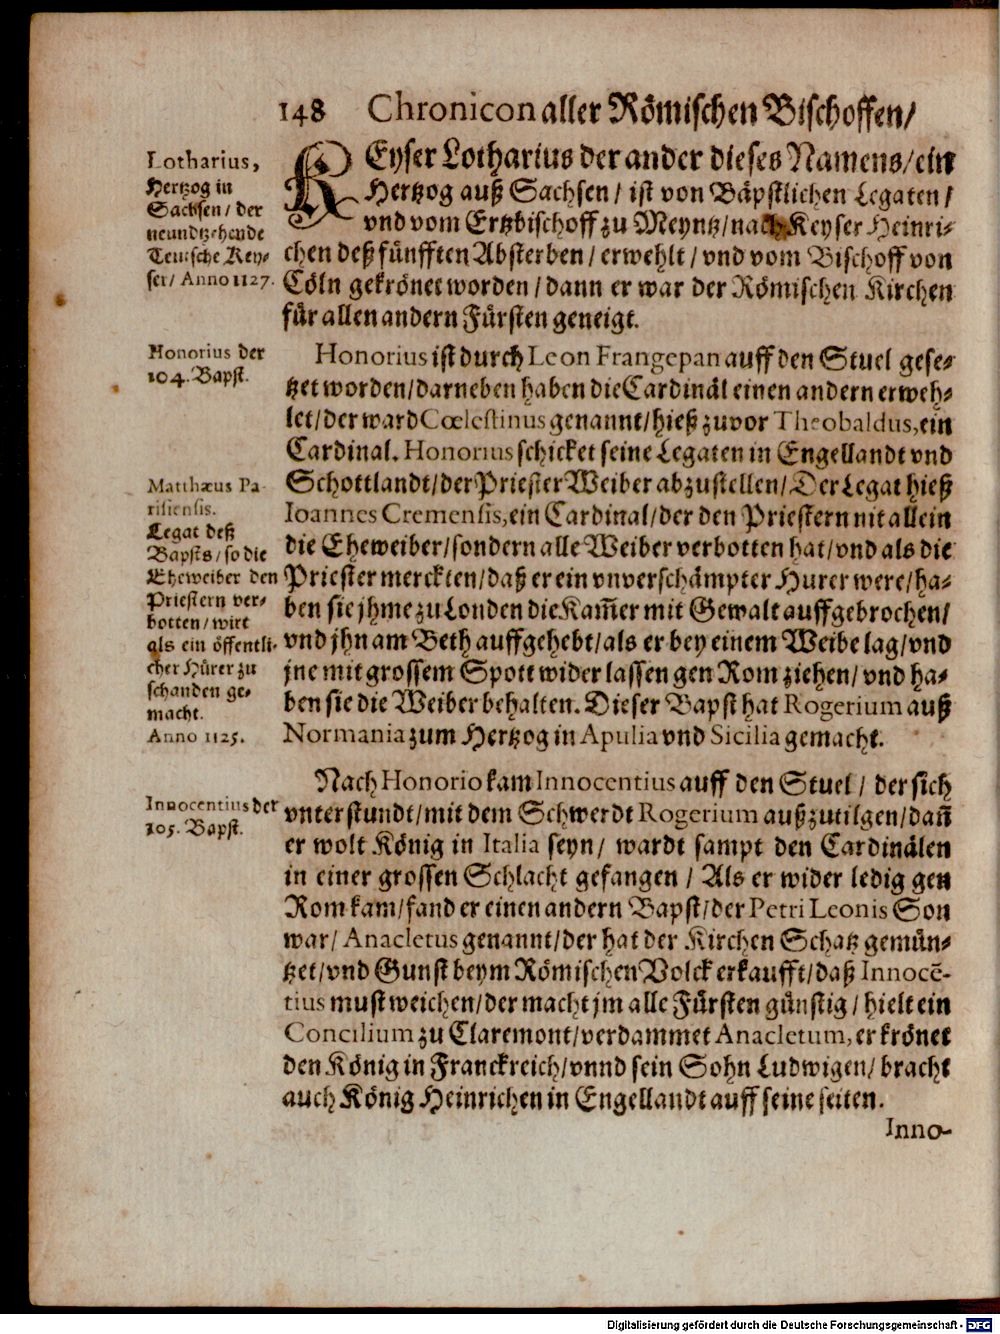 148 Chronicon aller Römischen Bischoffen/
Lotharius,
Hertzog in
Sachsen/ der
neundtzehende
Teutsche Key-
ser/ Anno 1127.
KEyser Lotharius der ander dieses Namens/ein
Hertzog auß Sachsen / ist von Bäpstlichen Legaten /
vnd vom Ertzbischoff zu Meyntz/nach Keyser Heinri-
chen deß fünfften Absterben / erwehlt / vnd vom Bischoff von
Cöln gekrönet worden / dann er war der Römischen Kirchen
für allen andern Fürsten geneigt.
Honorius der
104. Bapst.
Honorius ist durch Leon Frangepan auff den Stuel gese-
tzet worden/darneben haben die Cardinäl einen andern erweh-
let/der ward Cœlestinus genannt/hieß zuvor Theobaldus,ein
Cardinal. Honorius schicket seine Legaten in Engellandt vnd
Schottlandt/der Priester Weiber abzustellen/Der Legat hieß
Ioannes Cremensis,ein Cardinal/der den Priestern nit allein
die Eheweiber/sondern alle Weiber verbotten hat/vnd als die
Priester merckten/daß er ein vnverschämpter Hurer were/ha-
ben sie jhme zu Londen die Kam̃er mit Gewalt auffgebrochen/
vnd jhn am Beth auffgehebt/als er bey einem Weibe lag/vnd
jne mit grossem Spott wider lassen gen Rom ziehen/ vnd ha-
ben sie die Weiber behalten. Dieser Bapst hat Rogerium auß
Normania zum Hertzog in Apulia vnd Sicilia gemacht.
Matthæus Pa-
risiensis.
Legat deß
Bapsts/ so die
Eheweiber den
Priestern ver-
botten/ wirt
als ein öffentli-
cher Hürer zu
schanden ge-
macht.
Anno 1125.
Innocentius der
105. Bapst.
Nach Honorio kam Innocentius auff den Stuel / der sich
vnterstundt/mit dem Schwerdt Rogerium außzutilgen/dañ
er wolt König in Italia seyn/ wardt sampt den Cardinälen
in einer grossen Schlacht gefangen / Als er wider ledig gen
Rom kam/fand er einen andern Bapst/der Petri Leonis Son
war/ Anacletus genannt/der hat der Kirchen Schatz gemün-
tzet/vnd Gunst beym Römischen Volck erkaufft/daß Innocẽ-
tius must weichen/der macht jm alle Fürsten günstig / hielt ein
Concilium zu Claremont/verdammet Anacletum, er krönet
den König in Franckreich/vnnd sein Sohn Ludwigen/ bracht
auch König Heinrichen in Engellandt auff seine seiten.
Inno-
Digitalisierung gefördert durch die Deutsche Forschungsgemeinschaft - DFG